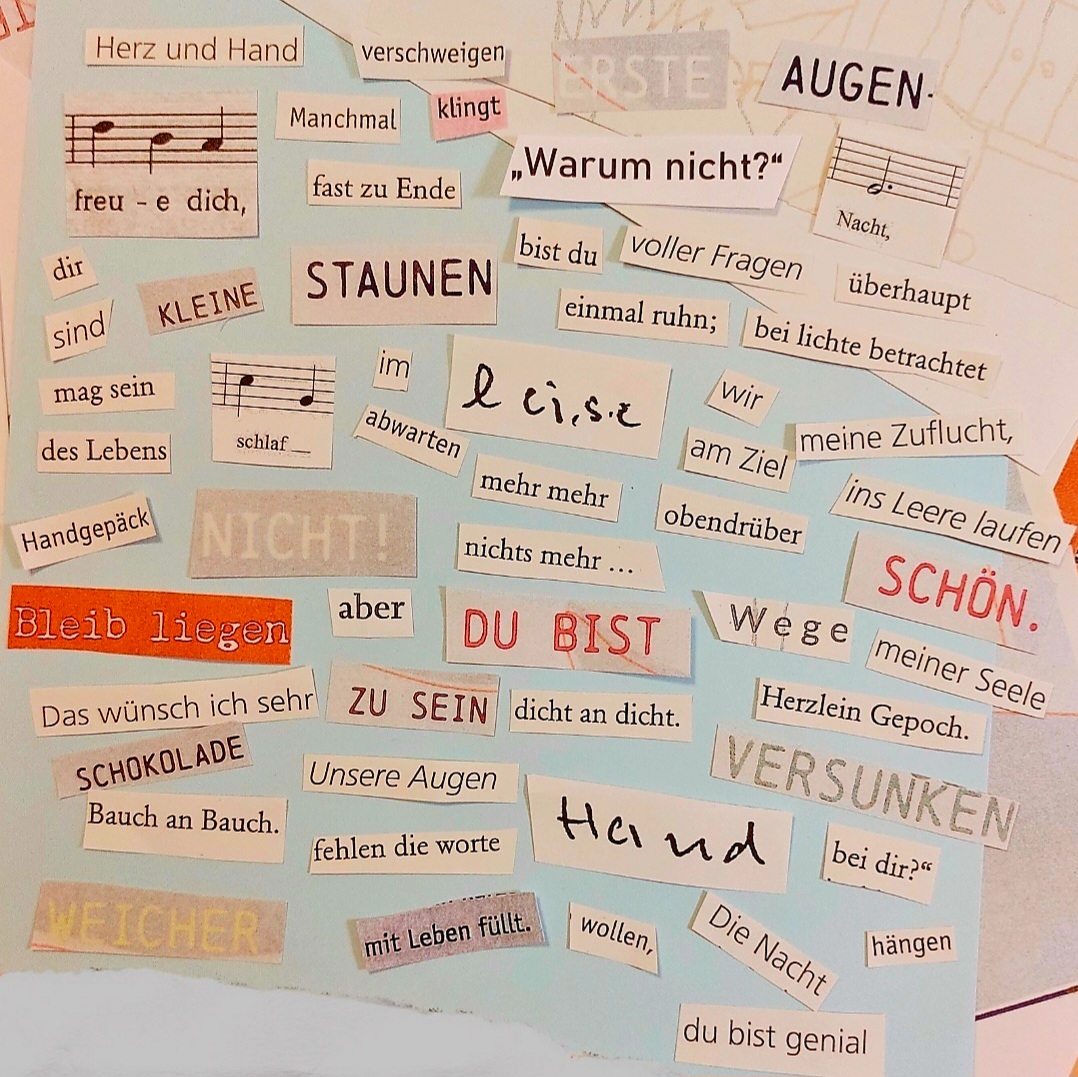 Herz und Hand
verschweigen
ERSTE
AUGEN.
Manchmal
klingt
„Warum nicht?“
freu - e dich,
fast zu Ende
Nacht,
dir
KLEINE
STAUNEN
bist du
voller Fragen
überhaupt
sind
einmal ruhn;
bei lichte betrachtet
mag sein
schlaf__
im
leise
wir
des Lebens
abwarten
am Ziel
meine Zuflucht,
mehr mehr
obendrüber
ins Leere laufen
Handgepäck
NICHT!
nichts mehr ...
SCHÖN.
Bleib liegen
aber
DU BIST
Wege
meiner Seele
Das wünsch ich sehr
ZU SEIN
dicht an dicht.
Herzlein Gepoch.
SCHOKOLADE
Unsere Augen
VERSUNKEN
Bauch an Bauch.
fehlen die worte
Hand
bei dir?“
WEICHER
mit Leben füllt.
wollen,
Die Nacht
hängen
du bist genial